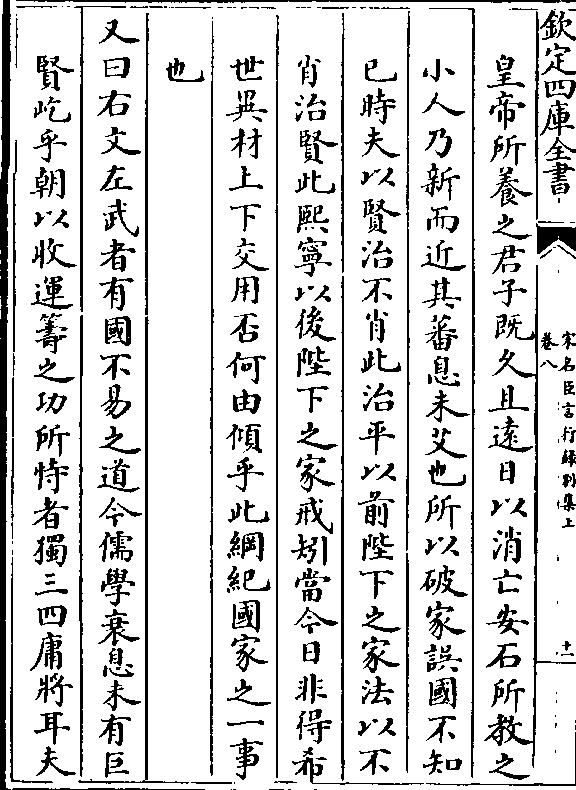 欽定四庫全書
宋名臣言行錄別集上
卷八
十一
皇帝所養之君子既久且遠日以消亡安石所教之
小人乃新而近其蕃息未艾也所以破家誤國不知
已時夫以賢治不肖此治平以前陛下之家法以不
肖治賢此熙寧以後陛下之家戒矧當今日非得希
世異材上下交用否何由傾乎此綱紀國家之一事
也
又曰右文左武者有國不易之道今儒學衰息未有巨
賢屹乎朝以收運籌之功所恃者獨三四庸將耳夫